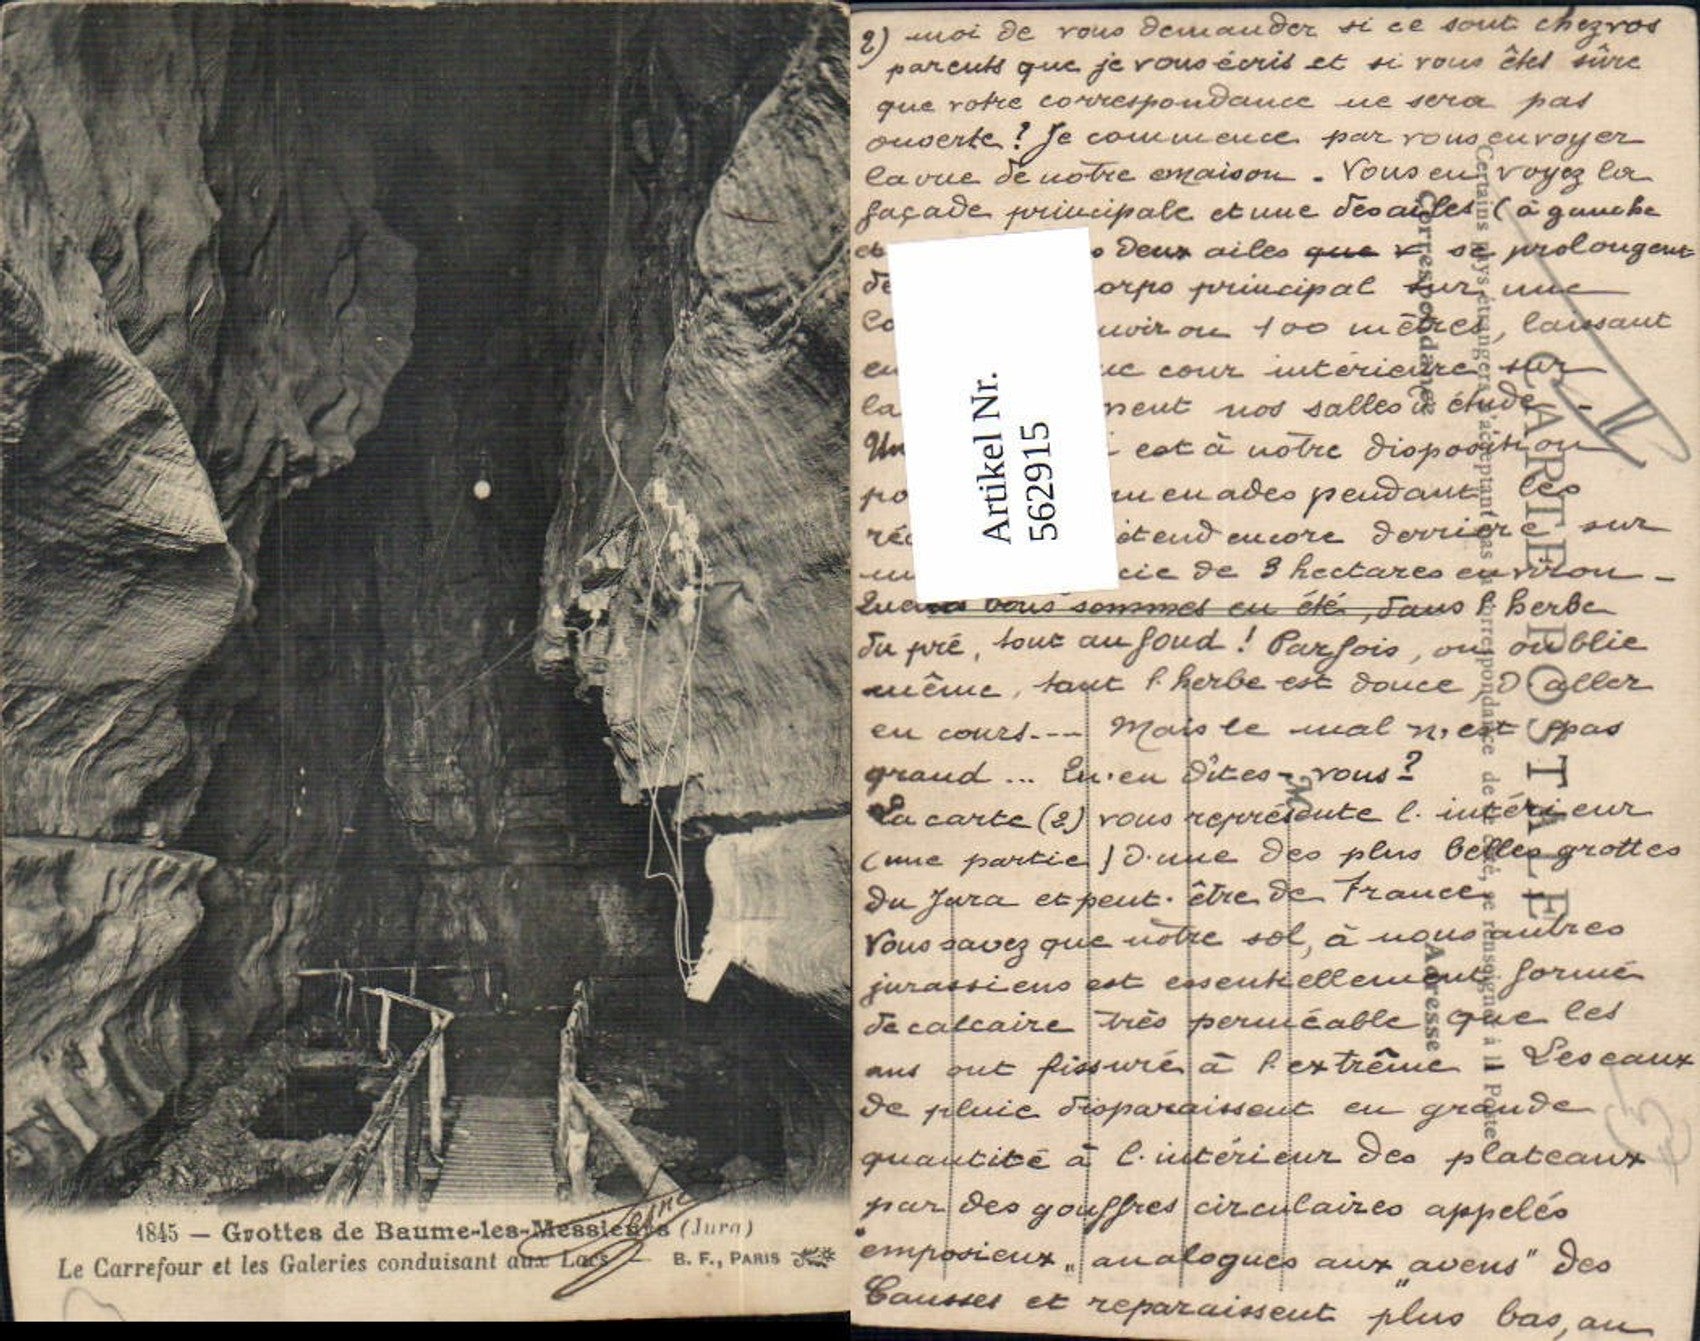 1845 — Grottes de Baume-les-Messieurs (Jura)
Le Carrefour et les Galeries conduisant aux Lacs — B. F., PARIS
2) moi de vous demander si ce sont chez vos
parents que je vous écris et si vous êtes sûre
que votre correspondance ne sera pas
ouverte ? Je commence par vous envoyer
la vue de notre maison. Vous en voyez la
façade principale et une des ailes (à gauche
deux ailes que se prolongent
corps principal sur une
environ 100 mètres, laissant
cour intérieure sur
la nos salles d'étude -
Un est à notre disposition
pendant les
étend encore derrière sur
de 3 hectares environ -
nous sommes en été, dans l'herbe
du pré, tout au fond ! Parfois, on oublie
même, tant l'herbe est douce, d'aller
en cours--- Mais le mal n'est pas
grand ... Qu'en dîtes-vous ?
La carte (2) vous représente l'intérieur
(une partie) d'une des plus belles grottes
du Jura et peut-être de France
Vous savez que notre sol, à nous autres
jurassiens est essentiellement formé
de calcaire très perméable que les
ans ont fissuré à l'extrême. Les eaux
de pluie disparaissent en grande
quantité à l'intérieur des plateaux
par des gouffres circulaires appelés
"emposieux" analogues aux "avens" des
Causses et reparaissent plus bas, au
Artikel Nr.
562915
CARTE POSTALE
Certains pays étrangers n'acceptant pas la correspondance de ce côté, se renseigner à la Poste
Correspondance
Adresse
M